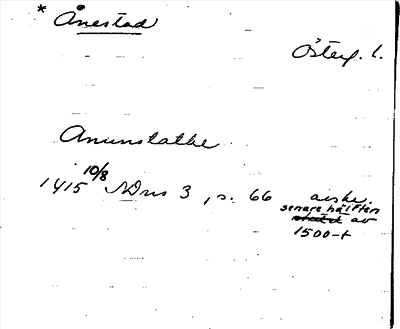 * Ånestad
Österg. l.
Anunstathe
1415 10/8 NDns 3, s. 66 avskr.
senare hälften
av
1500-t